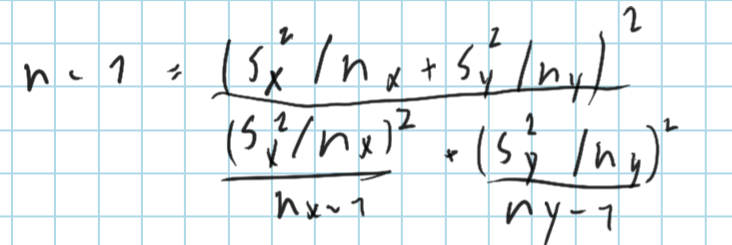 n - 1 = (s_x^2 / n_x + s_y^2 / n_y)^2
(s_x^2 / n_x)^2 + (s_y^2 / n_y)^2
n_x - 1 n_y - 1